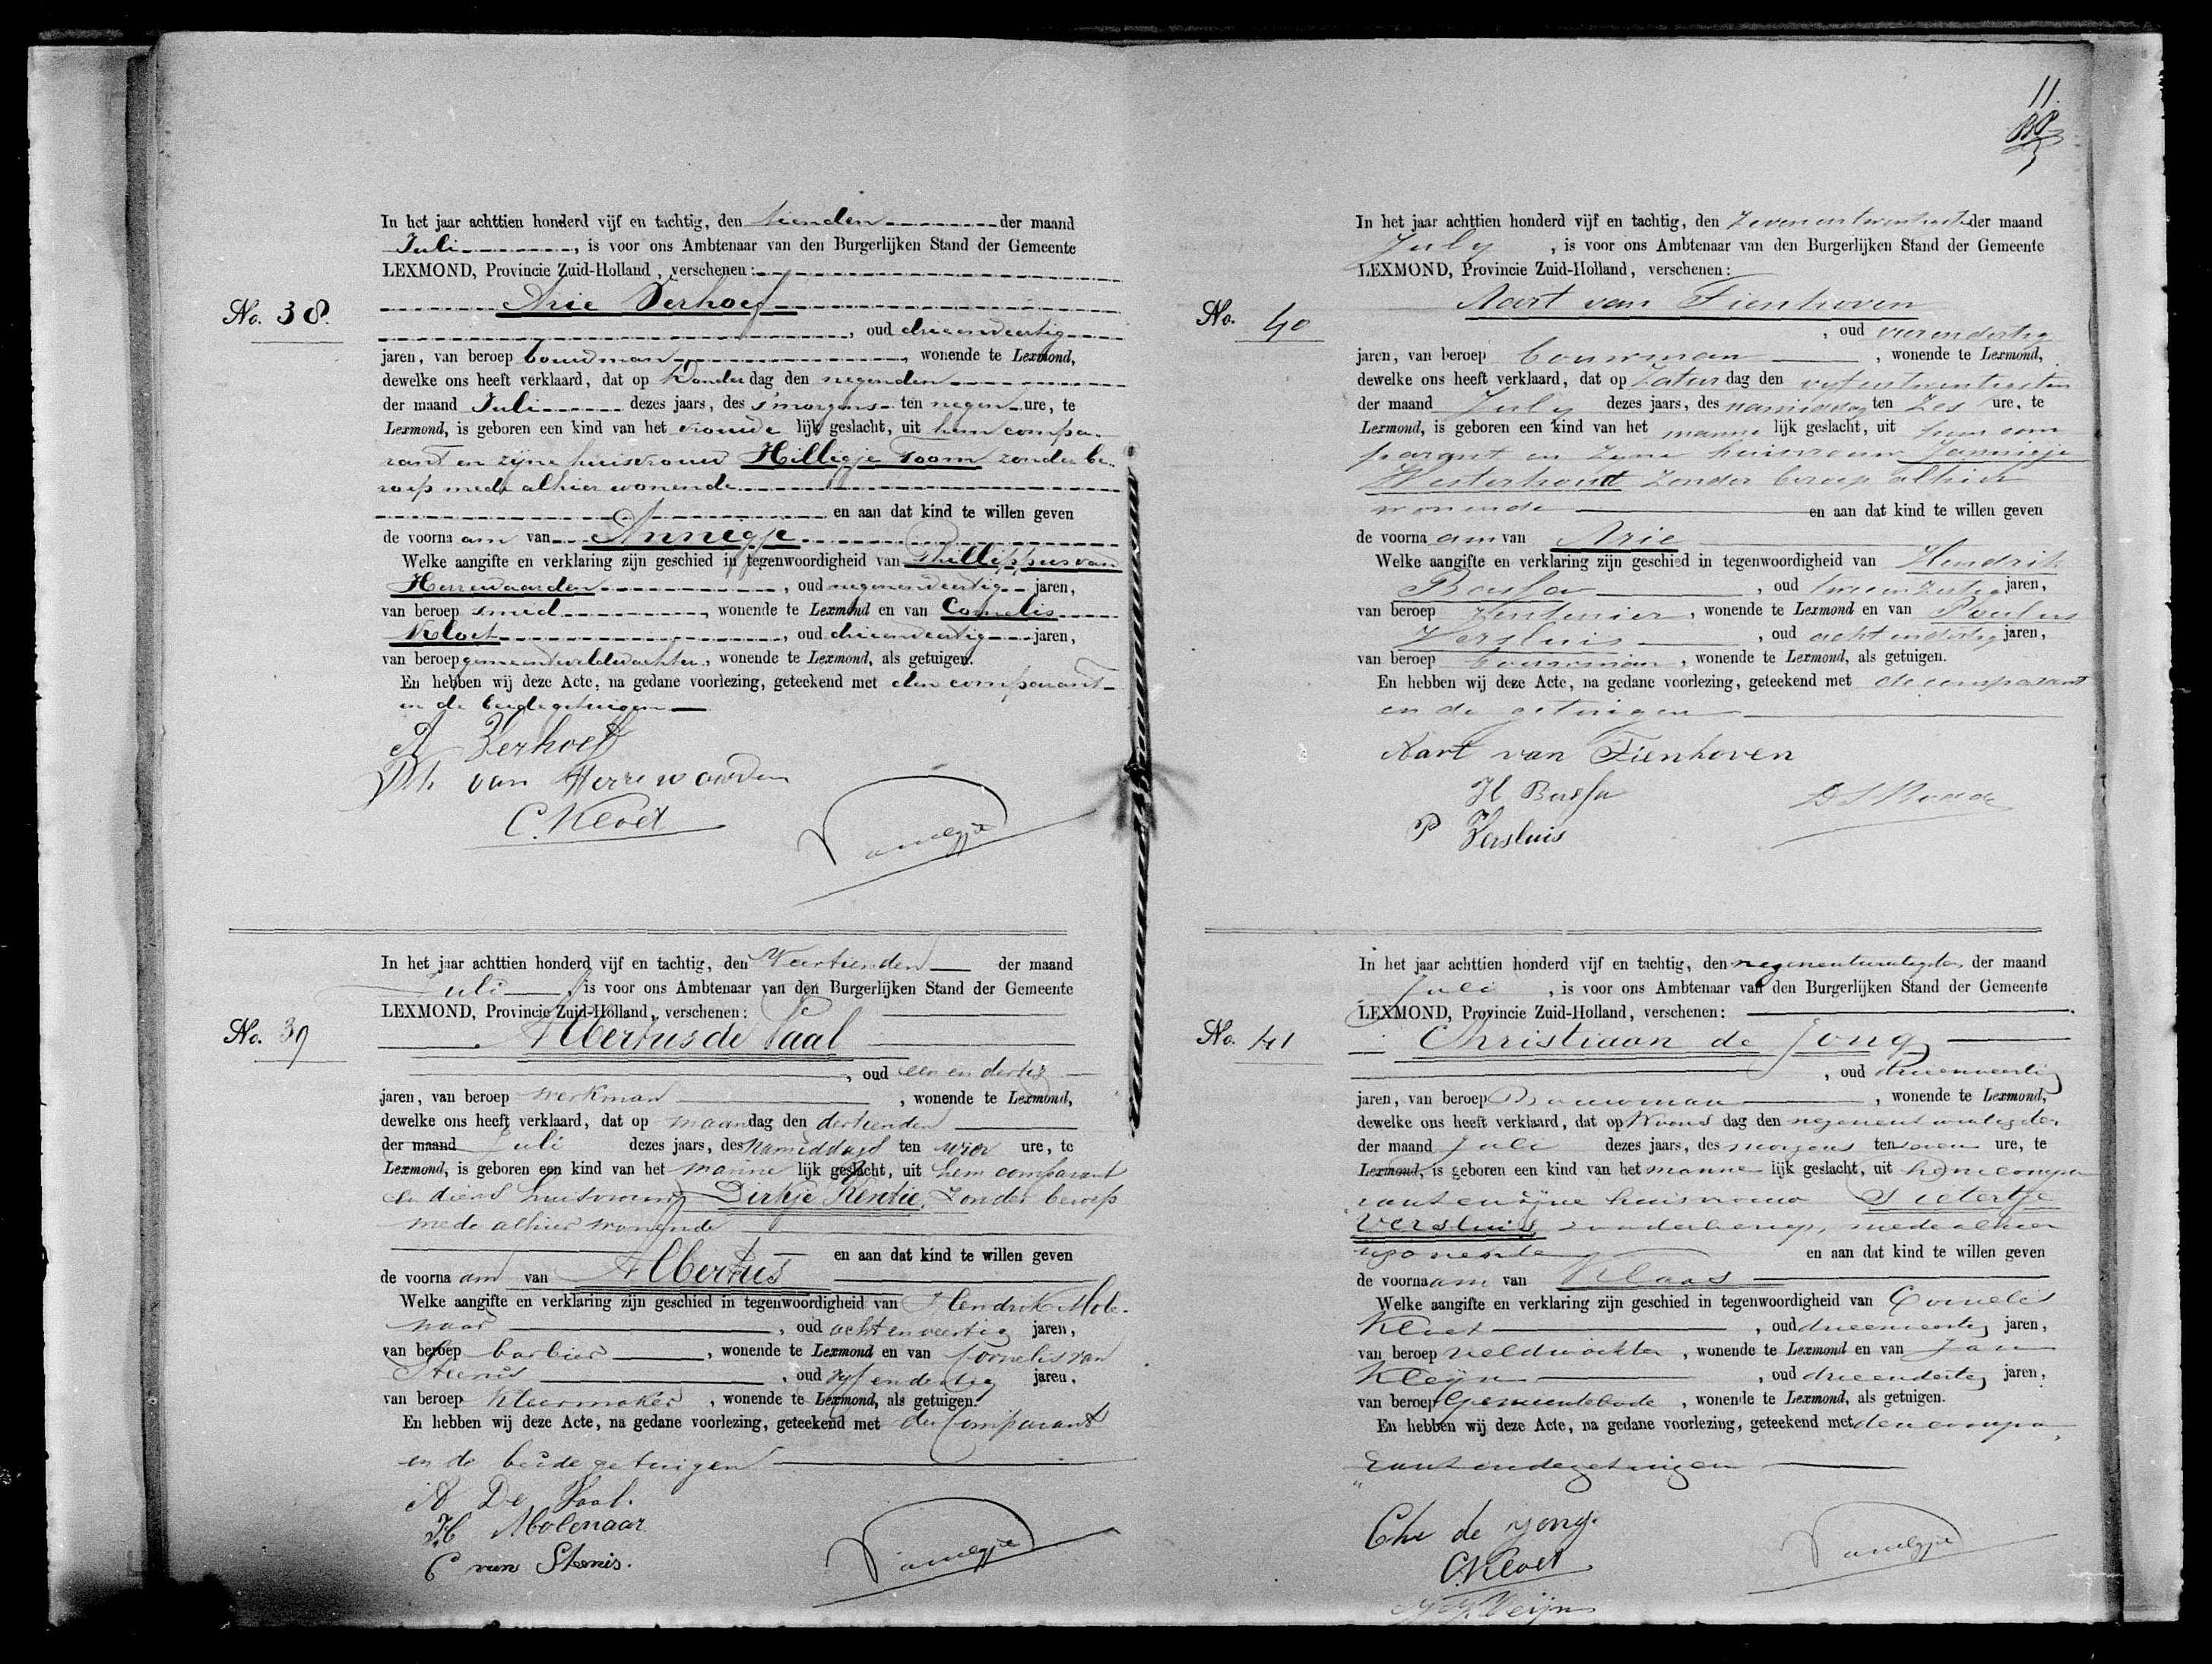 In het jaar achttien honderd vijf en tachtig, den tienden der maand
Juli, is voor ons Ambtenaar van den Burgerlijken Stand der Gemeente
LEXMOND, Provincie Zuid-Holland, verschenen:
No. 38.
Arie Verhoef
, oud drieenveertig
jaren, van beroep bouwman, wonende te Lexmond,
dewelke ons heeft verklaard, dat op Donderdag den negenden
der maand Juli dezes jaars, des s'morgens ten negen ure, te
Lexmond, is geboren een kind van het vrouwelijk geslacht, uit hem compa-
rant en zijne huisvrouw Hilligje Toom zonder be-
roep mede alhier wonende
en aan dat kind te willen geven
de voornaam van Annigje
Welke aangifte en verklaring zijn geschied in tegenwoordigheid van Phillippus van
Herrewaarden, oud negenenveertig jaren,
van beroep smid, wonende te Lexmond en van Cornelis
Kloet, oud drieenveertig jaren,
van beroep gemeenteveldwachter, wonende te Lexmond, als getuigen.
En hebben wij deze Acte, na gedane voorlezing, geteekend met den comparant
en de beide getuigen
A Verhoef
Ph van Herrewaarden
C. Kloet
In het jaar achttien honderd vijf en tachtig, den Veertienden der maand
Juli, is voor ons Ambtenaar van den Burgerlijken Stand der Gemeente
LEXMOND, Provincie Zuid-Holland, verschenen:
No. 39
Albertus de Vaal
, oud een en dertig
jaren, van beroep werkman, wonende te Lexmond,
dewelke ons heeft verklaard, dat op maandag den dertienden
der maand Juli dezes jaars, des namiddags ten vier ure, te
Lexmond, is geboren een kind van het mannelijk geslacht, uit hem comparant
en diens huisvrouw Dirkje Rentie, zonder beroep
mede alhier wonende
en aan dat kind te willen geven
de voornaam van Albertus
Welke aangifte en verklaring zijn geschied in tegenwoordigheid van Hendrik Mole-
naar, oud acht en veertig jaren,
van beroep barbier, wonende te Lexmond en van Cornelis van
Steenis, oud vyf en dertig jaren,
van beroep kleermaker, wonende te Lexmond, als getuigen.
En hebben wij deze Acte, na gedane voorlezing, geteekend met den Comparant
en de beide getuigen
A De Vaal.
H Molenaar
C van Steenis.
11.
In het jaar achttien honderd vijf en tachtig, den zevenentwintigste der maand
July, is voor ons Ambtenaar van den Burgerlijken Stand der Gemeente
LEXMOND, Provincie Zuid-Holland, verschenen:
No. 40
Aart van Tienhoven
, oud vierendertig
jaren, van beroep bouwman, wonende te Lexmond,
dewelke ons heeft verklaard, dat op Zaturdag den vyfentwintigsten
der maand July dezes jaars, des namiddag ten zes ure, te
Lexmond, is geboren een kind van het mannelijk geslacht, uit hem com
parant en zyne huisvrouw Jannigje
Westerhout zonder beroep alhier
wonende en aan dat kind te willen geven
de voornaam van Arie
Welke aangifte en verklaring zijn geschied in tegenwoordigheid van Hendrik
Bassa, oud tweeenzestig jaren,
van beroep rentenier, wonende te Lexmond en van Paulus
Versluis, oud achtendertig jaren,
van beroep bouwman, wonende te Lexmond, als getuigen.
En hebben wij deze Acte, na gedane voorlezing, geteekend met de comparant
en de getuigen
Aart van Tienhoven
H Bassa
P Versluis
In het jaar achttien honderd vijf en tachtig, den negenentwintigsten der maand
Juli, is voor ons Ambtenaar van den Burgerlijken Stand der Gemeente
LEXMOND, Provincie Zuid-Holland, verschenen:
No. 41
Christiaan de Jong
, oud drieenveertig
jaren, van beroep Bouwman, wonende te Lexmond,
dewelke ons heeft verklaard, dat op Woensdag den negenentwintigsten
der maand Juli dezes jaars, des morgens ten ure, te
Lexmond, is geboren een kind van het mannelijk geslacht, uit hem compa
rant en zijne huisvrouw Pietertje
Versluis, zonder beroep, mede alhier
wonende en aan dat kind te willen geven
de voornaam van Klaas
Welke aangifte en verklaring zijn geschied in tegenwoordigheid van Cornelis
Kloet, oud drieenveertig jaren,
van beroep veldwachter, wonende te Lexmond en van Jan
Kleijn, oud drieendertig jaren,
van beroep Gemeentebode, wonende te Lexmond, als getuigen.
En hebben wij deze Acte, na gedane voorlezing, geteekend met den compa
rant en de getuigen
Chr de Jong.
C. Kloet